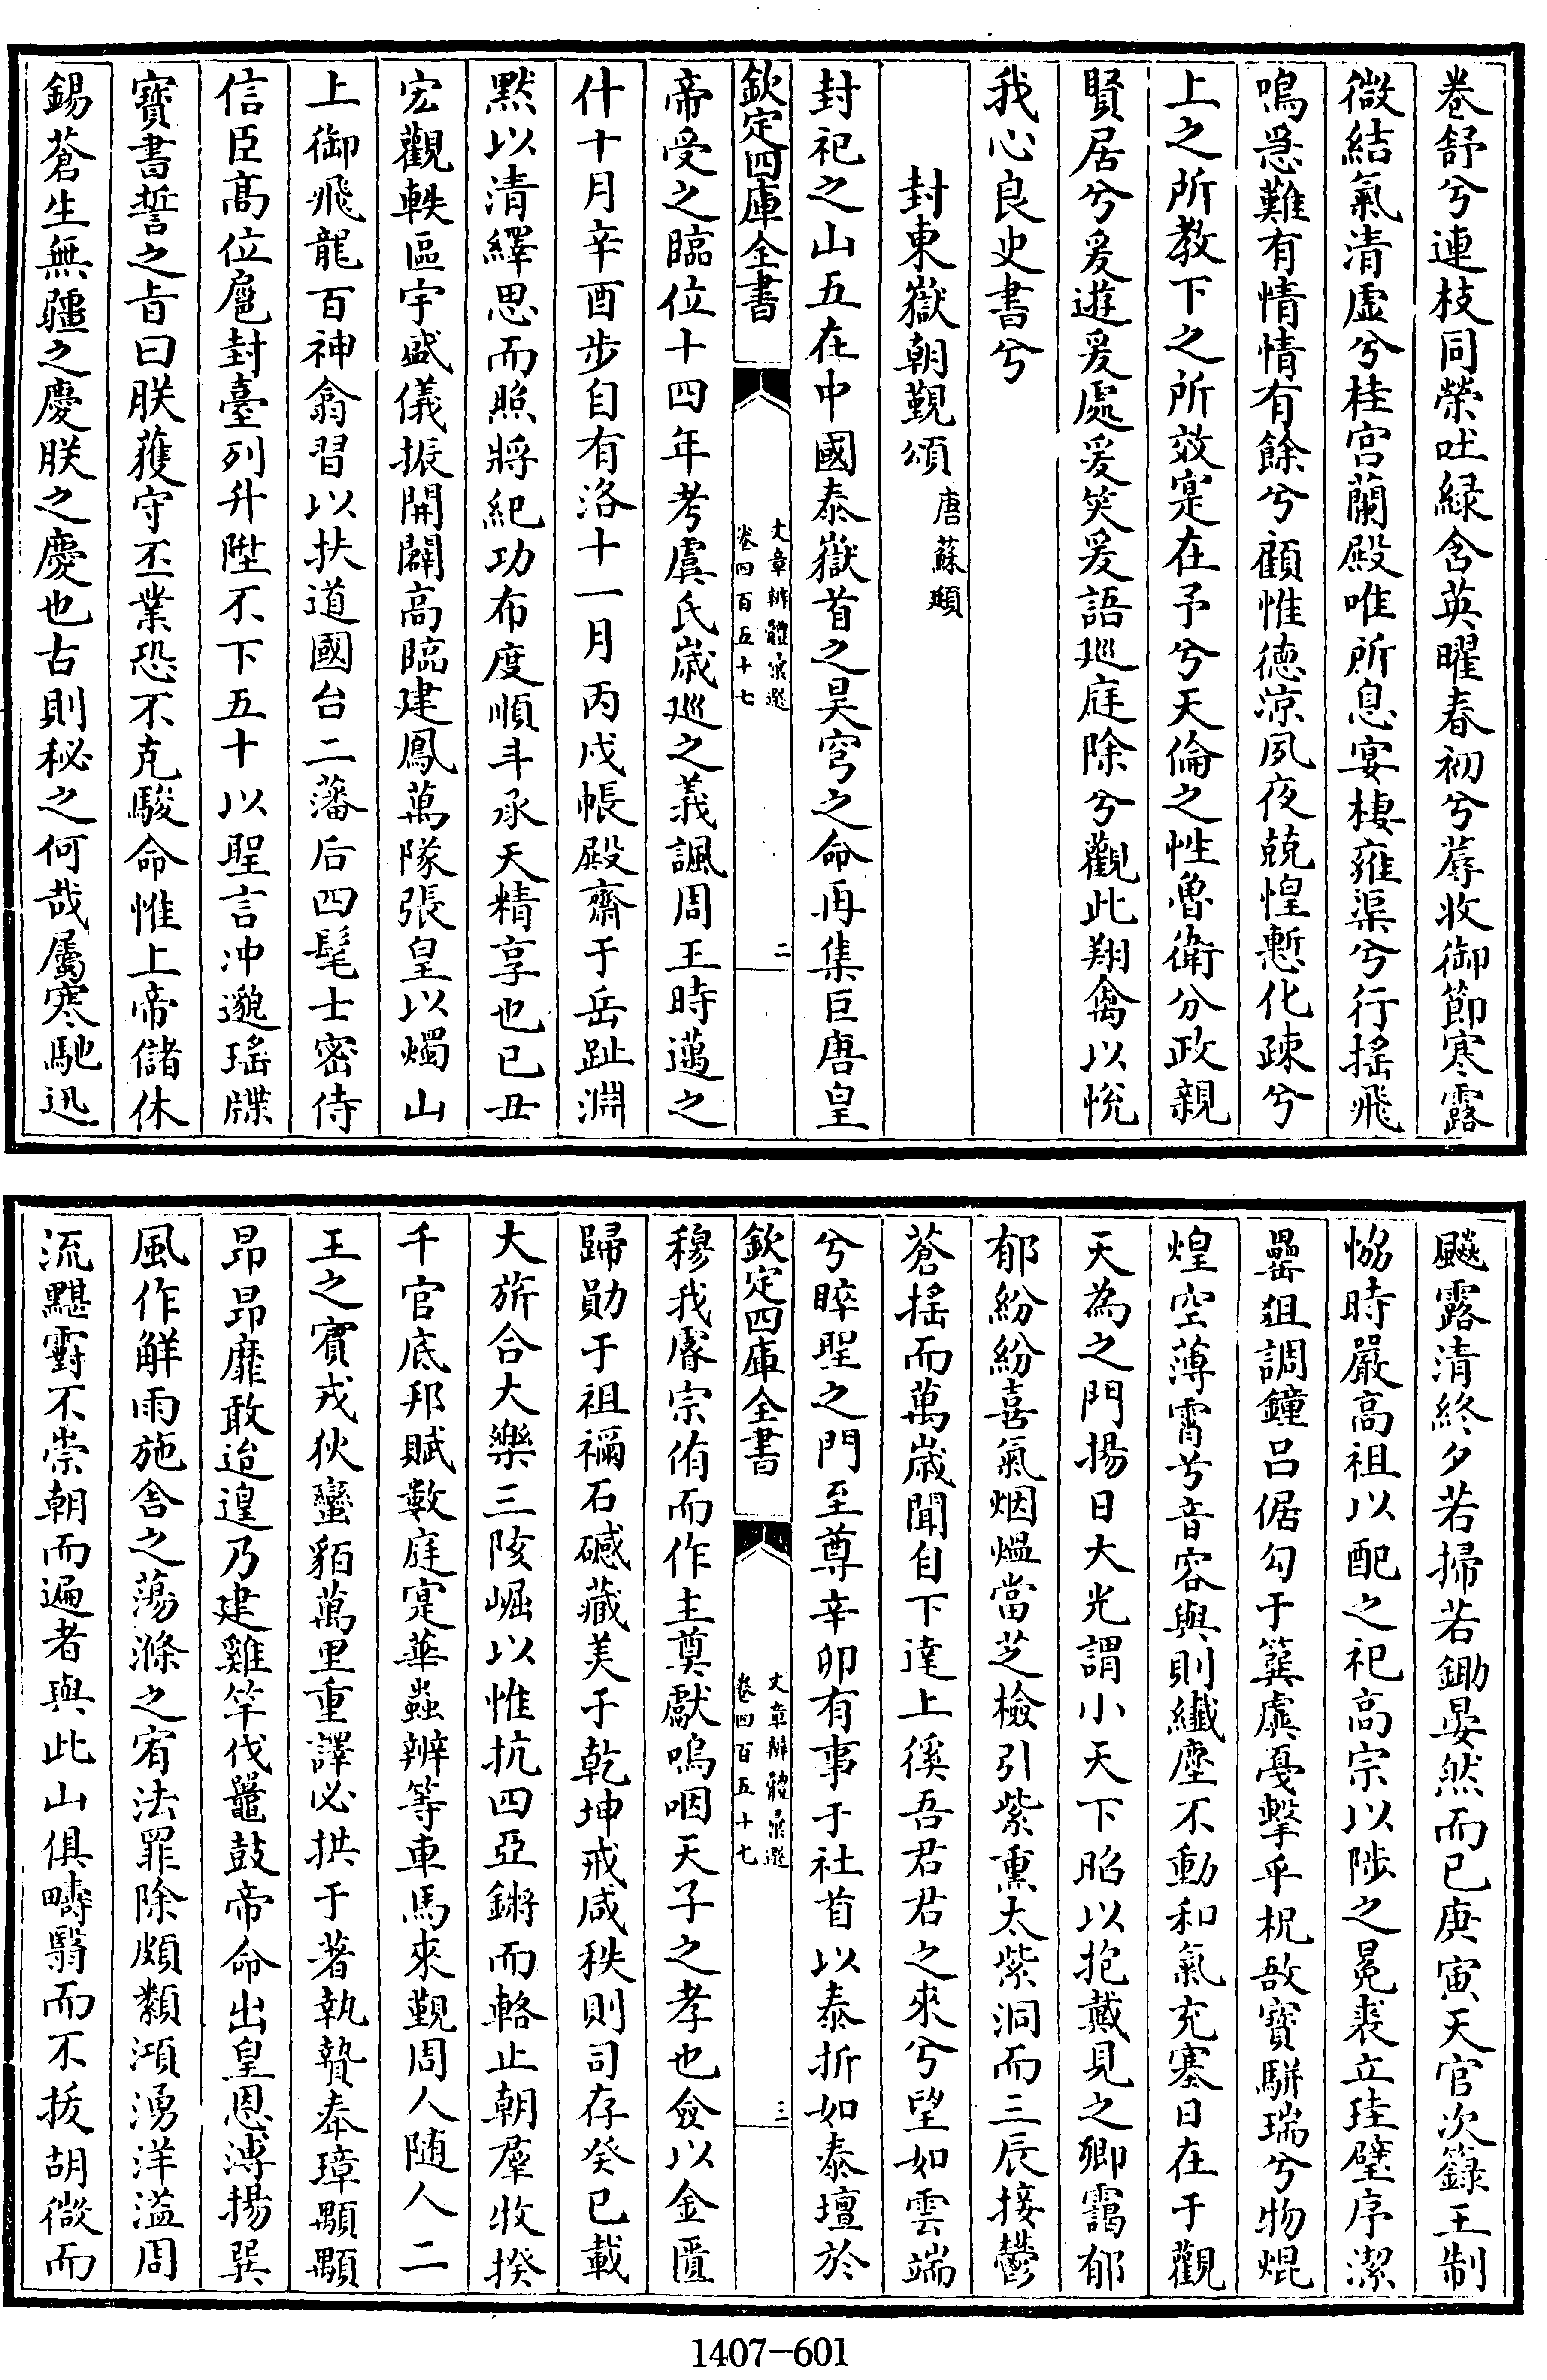 卷舒兮連枝同榮吐緑含英曜春初兮蓐收御節寒露
微結氣清虛兮桂宫蘭殿唯所息宴棲雍渠兮行揺飛
鳴急難有情情有餘兮顧惟德凉夙夜兢惶慙化疎兮
上之所教下之所效寔在予兮天倫之性魯衛分政親
賢居兮爰遊爰處爰笑爰語廵庭除兮觀此翔禽以悅
我心良史書兮
封東嶽朝覲頌唐蘇頲
封祀之山五在中國泰嶽首之昊穹之命再集巨唐皇
欽定四庫全書
文章辨體彙選
卷四百五十七
二
帝受之臨位十四年考虞氏歲廵之義諷周王時邁之
什十月辛酉步自有洛十一月丙戌帳殿齋于岳趾淵
黙以清繹思而照將紀功布度順斗承天精享也已丑
宏觀軼區宇盛儀振開闢高臨建鳳萬隊張皇以燭山
上御飛龍百神翕習以扶道國台二藩后四髦士密侍
信臣髙位扈封臺列升陛不下五十以聖言冲邈瑤牒
寳書誓之㫖曰朕獲守丕業恐不克駿命惟上帝儲休
錫蒼生無疆之慶朕之慶也古則秘之何哉屬寒馳迅
飈露清終夕若掃若鋤晏然而已庚寅天官次籙王制
恊時嚴高祖以配之祀高宗以陟之冕裘立珪璧序潔
罍俎調鐘吕倨勾于簨虡戞擊乎柷敔寳駢瑞兮物焜
煌空薄霄兮音容與則纎塵不動和氣充塞日在于觀
天為之門揚日大光謂小天下昭以抱戴見之卿靄郁
郁紛紛喜氣烟煴當芝檢引紫熏太紫洞而三辰接鬱
蒼揺而萬歲聞自下達上徯吾君君之來兮望如雲端
兮睟聖之門至尊辛卯有事于社首以泰折如泰壇於
欽定四庫全書
文章辨體彙選
卷四百五十七
三
穆我睿宗侑而作主奠獻嗚咽天子之孝也僉以金匱
歸勛于祖禰石磩藏美于乾坤戒咸秩則司存癸已載
大旂合大樂三陔崛以惟抗四亞鏘而輅止朝羣牧揆
千官底邦賦數庭寔華蟲辨等車馬來覲周人随人二
王之賓戎狄蠻貊萬里重譯必拱于著執贄奉璋顒顒
昂昂靡敢迨遑乃建雞竿伐鼉鼓帝命出皇恩溥揚巽
風作解雨施舍之蕩滌之宥法罪除頗纇澒湧洋溢周
流黮霨不崇朝而遍者與此山俱疇翳而不拔胡微而
1407-601